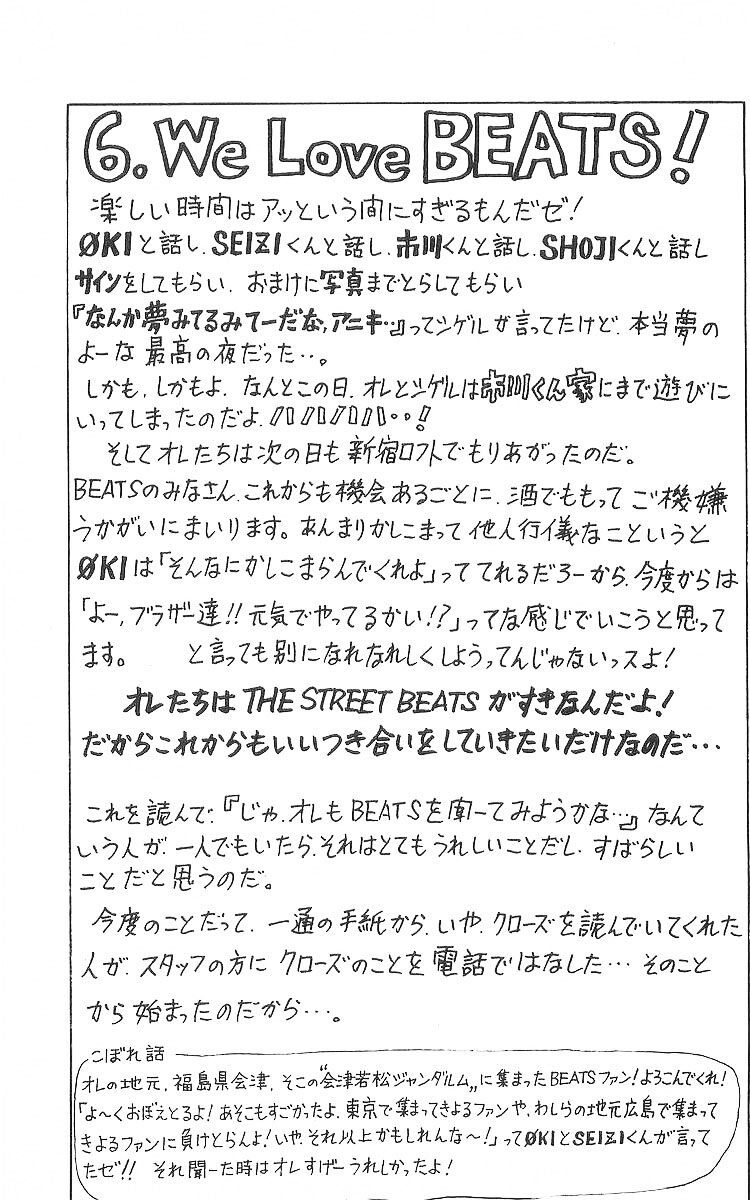 6. We Love BEATS!
楽しい時間はアッという間にすぎるもんだゼ!
ØKIと話し、SEIZIくんと話し、市川くんと話し、SHOJIくんと話し
サインをしてもらい、おまけに写真までとらしてもらい
『なんか夢みてるみてーだな,アニキ‥』ってシゲルが言ってたけど、本当夢の
よーな最高の夜だった‥。
しかも、しかもよ、なんとこの日、オレとシゲルは市川くん家にまで遊びに
いってしまったのだよ、ハハハハハ‥!
そしてオレたちは次の日も新宿ロフトでもりあがったのだ。
BEATSのみなさん、これからも機会あるごとに、酒でももってご機嫌
うかがいにまいります。あんまりかしこまって他人行儀なこというと
ØKIは「そんなにかしこまらんでくれよ」っててれるだろーから、今度からは
「よー,ブラザー達!!元気でやってるかい!?」ってな感じでいこうと思って
ます。 と言っても別になれなれしくしようってんじゃないっスよ!
オレたちはTHE STREET BEATSがすきなんだよ!
だからこれからもいいつき合いをしていきたいだけなのだ…
これを読んで、『じゃ、オレもBEATSを聞ーてみようかな…』なんて
いう人が、一人でもいたら、それはとてもうれしいことだし、すばらしい
ことだと思うのだ。
今度のことだって、一通の手紙から、いや、クローズを読んでいてくれた
人が、スタッフの方にクローズのことを電話ではなした…そのこと
から始まったのだから…。
こぼれ話
オレの地元、福島県会津、そこの"会津若松ジャンダルム"に集まったBEATSファン!よろこんでくれ!
「よ〜くおぼえとるよ!あそこもすごかったよ、東京で集まってきよるファンや、わしらの地元広島で集まって
きよるファンに負けとらんよ!いや、それ以上かもしれんな〜!」ってØKIとSEIZIくんが言って
たぜ!! それ聞ーた時はオレすげーうれしかったよ!